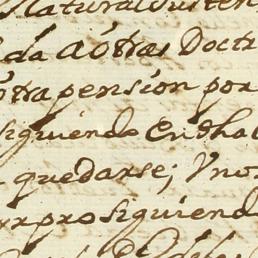 Natural susten
da aótras Doctr
ótra pension por
siguiendo en dha
quedarse; Yno
prosiguiendo